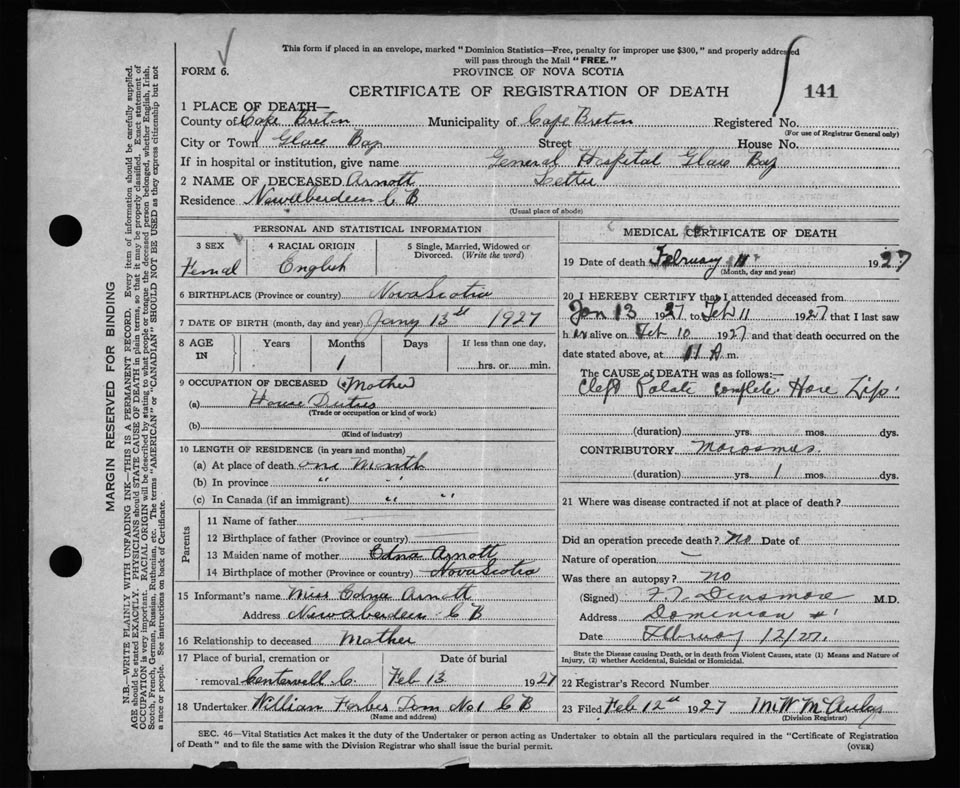 This form if placed in an envelope, marked "Dominion Statistics—Free, penalty for improper use $300," and properly addressed
will pass through the Mail "FREE."
FORM 6.
PROVINCE OF NOVA SCOTIA
CERTIFICATE OF REGISTRATION OF DEATH
141
1 PLACE OF DEATH—
County of Cape Breton Municipality of Cape Breton Registered No.
(For use of Registrar General only)
City or Town Glace Bay Street House No.
If in hospital or institution, give name General Hospital Glace Bay
2 NAME OF DECEASED Arnott
Residence New Aberdeen C B
(Usual place of abode)
PERSONAL AND STATISTICAL INFORMATION
3 SEX 4 RACIAL ORIGIN 5 Single, Married, Widowed or Divorced. (Write the word)
Femal English
6 BIRTHPLACE (Province or country) Nova Scotia
7 DATE OF BIRTH (month, day and year) Jany 13st 1927
8 AGE IN Years Months Days If less than one day,
1 hrs. or min.
9 OCCUPATION OF DECEASED (Mother)
(a) House Duties
(Trade or occupation or kind of work)
(b)
(Kind of industry)
10 LENGTH OF RESIDENCE (in years and months)
(a) At place of death one Month
(b) In province " "
(c) In Canada (if an immigrant) " "
Parents
11 Name of father
12 Birthplace of father (Province or country)
13 Maiden name of mother Edna Arnott
14 Birthplace of mother (Province or country) Nova Scotia
15 Informant's name Miss Edna Arnott
Address New Aberdeen C B
16 Relationship to deceased Mother
17 Place of burial, cremation or removal Date of burial
Feb 13 1927
18 Undertaker William Forbes Dom No 1 C B
(Name and address)
MEDICAL CERTIFICATE OF DEATH
19 Date of death February 11 1927
(Month, day and year)
20 I HEREBY CERTIFY that I attended deceased from
Jan 13 1927 to Feb 11 1927 that I last saw
h er alive on Feb 10 1927 and that death occurred on the
date stated above, at 11 A m.
The CAUSE OF DEATH was as follows:—
Cleft Palate complete. Hare Lip.
(duration) yrs. mos. dys.
CONTRIBUTORY Marasmus.
(duration) yrs. 1 mos. dys.
21 Where was disease contracted if not at place of death?
Did an operation precede death? No Date of
Nature of operation —
Was there an autopsy? no
(Signed) Densmore M.D.
Address Dominion
Date February 12/27.
State the Disease causing Death, or in death from Violent Causes, state (1) Means and Nature of
Injury, (2) whether Accidental, Suicidal or Homicidal.
22 Registrar's Record Number
23 Filed Feb 12th 1927 M W McAulay
(Division Registrar)
SEC. 46—Vital Statistics Act makes it the duty of the Undertaker or person acting as Undertaker to obtain all the particulars required in the "Certificate of Registration
of Death" and to file the same with the Division Registrar who shall issue the burial permit.
(OVER)
MARGIN RESERVED FOR BINDING
N.B.—WRITE PLAINLY WITH UNFADING INK—THIS IS A PERMANENT RECORD. Every item of information should be carefully supplied.
AGE should be stated EXACTLY. PHYSICIANS should STATE CAUSE OF DEATH in plain terms, so that it may be properly classified. Exact statement of
OCCUPATION is very important. RACIAL ORIGIN will be described by stating to what people or tongue the deceased person belonged, whether English, Irish,
Scotch, French, German, Russian, Ruthenian, etc. The terms "AMERICAN" or "CANADIAN" SHOULD NOT BE USED as they express citizenship but not
a race or people. See instructions on back of Certificate.